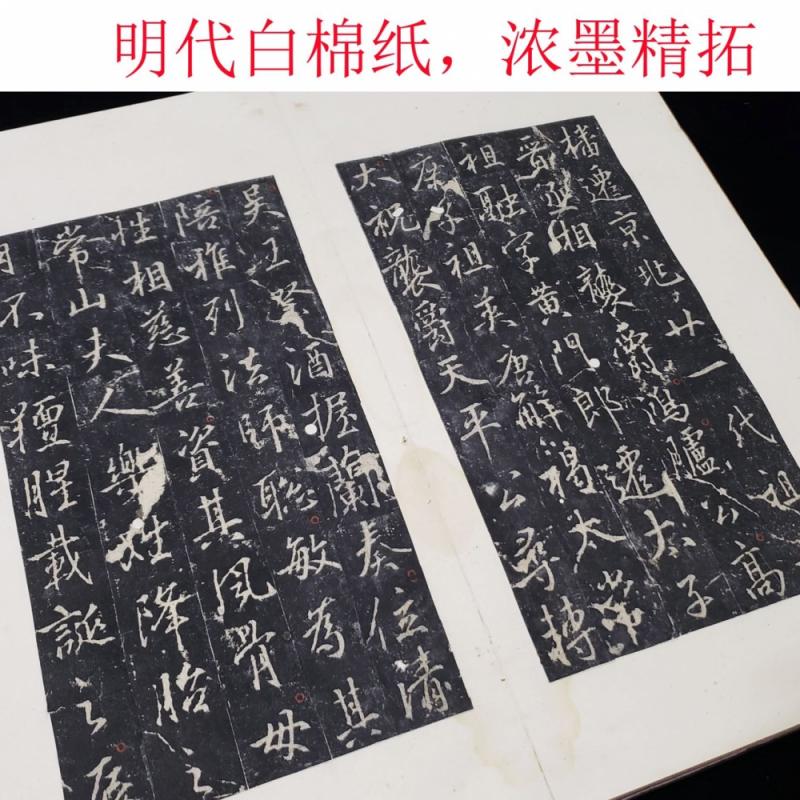 明代白棉纸，浓墨精拓
播遷京兆廿一代祖
晉丞相襲爵鴻臚公高
祖融字黃門郎遷太子
庶子祖英唐解褐太常
太祝襲爵天平公尋轉
吳王祭酒握蘭奏位清
陪雅列法師聡敏為其
性相慈善資其風骨母
常山夫人樂姓降胎之
月不味羶腥載誕之辰